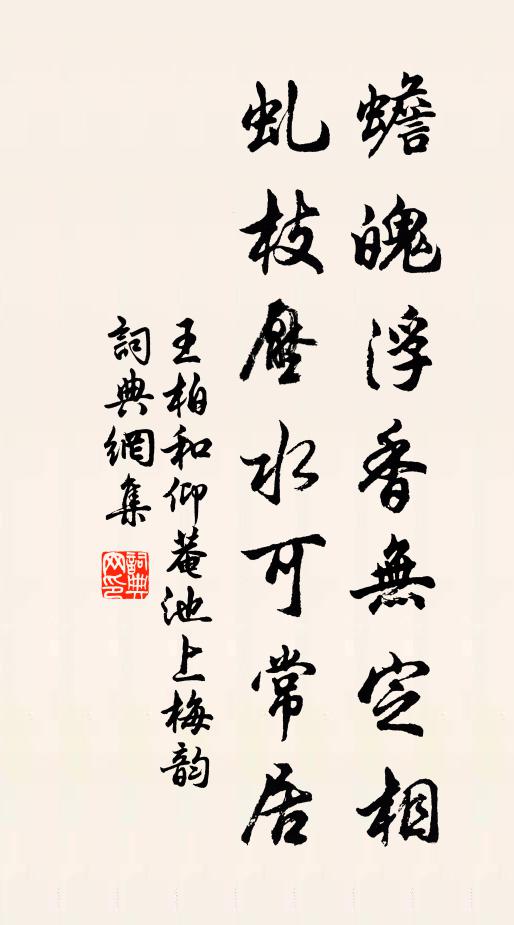 蟾魄浮香無定相
虬枝壓水可常居
王柏和仰菴池上梅韵
詞典網集
詞典
网印